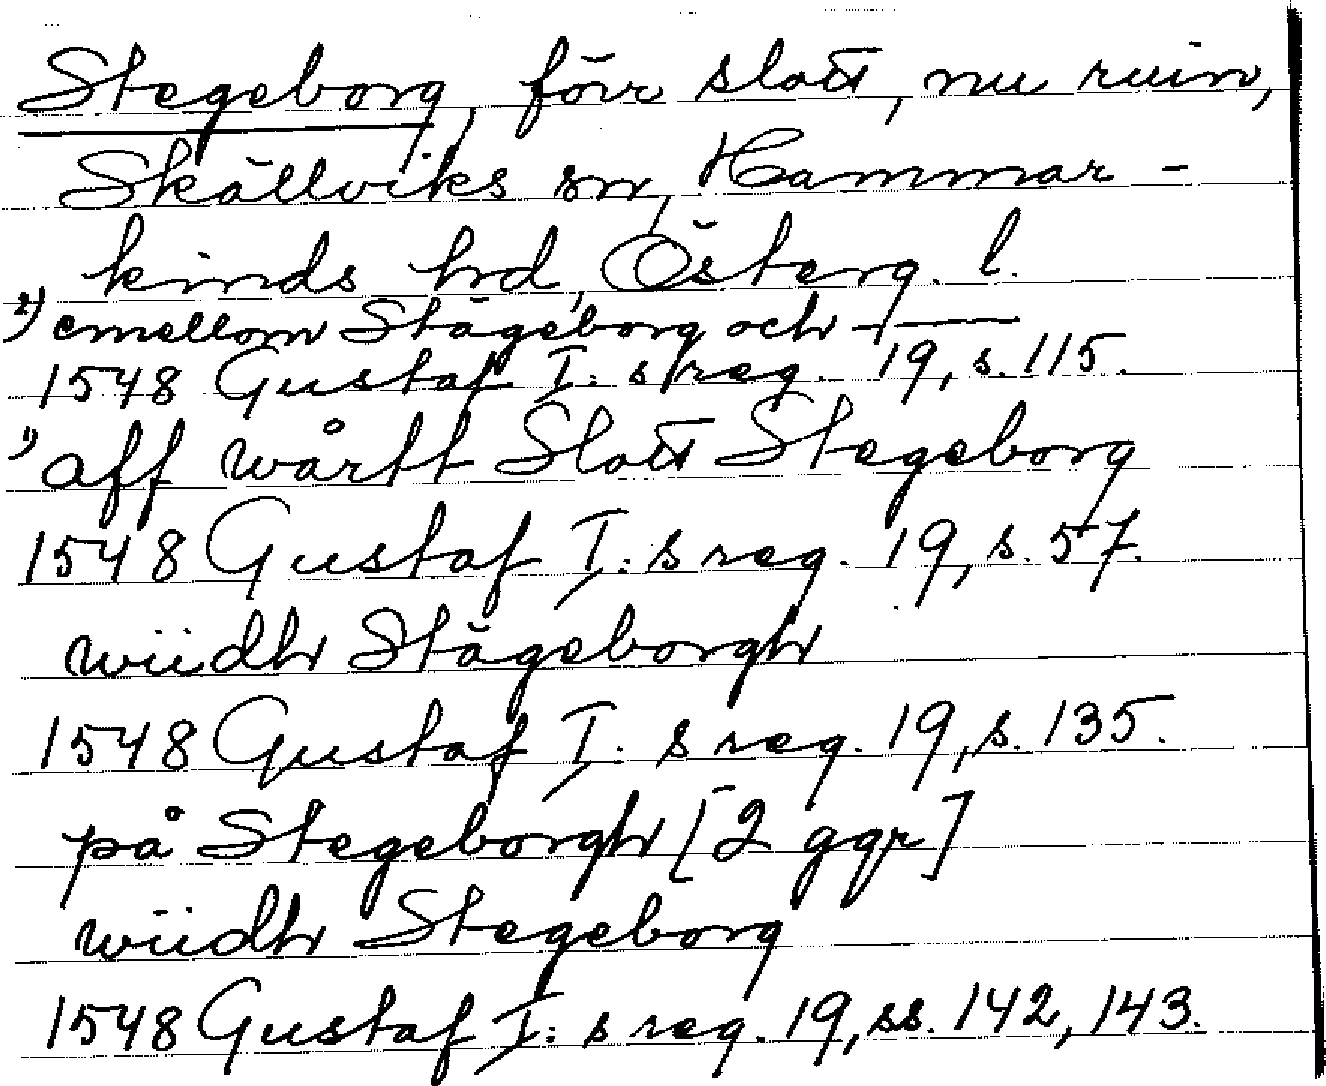 Stegeborg, förr slott, nu ruin,
Skällviks sn, Hammar-
kinds hd, Österg. l.
2) emellom Stägeborg och -/——
1548 Gustaf I:s reg. 19, s. 115.
1) aff wårtt Slott Stegeborg
1548 Gustaf I:s reg. 19, s. 57.
wiidh Stägeborgh
1548 Gustaf I:s reg. 19, s. 135.
på Stegeborgh [2 ggr]
wiidh Stegeborg
1548 Gustaf I:s reg. 19, ss. 142, 143.